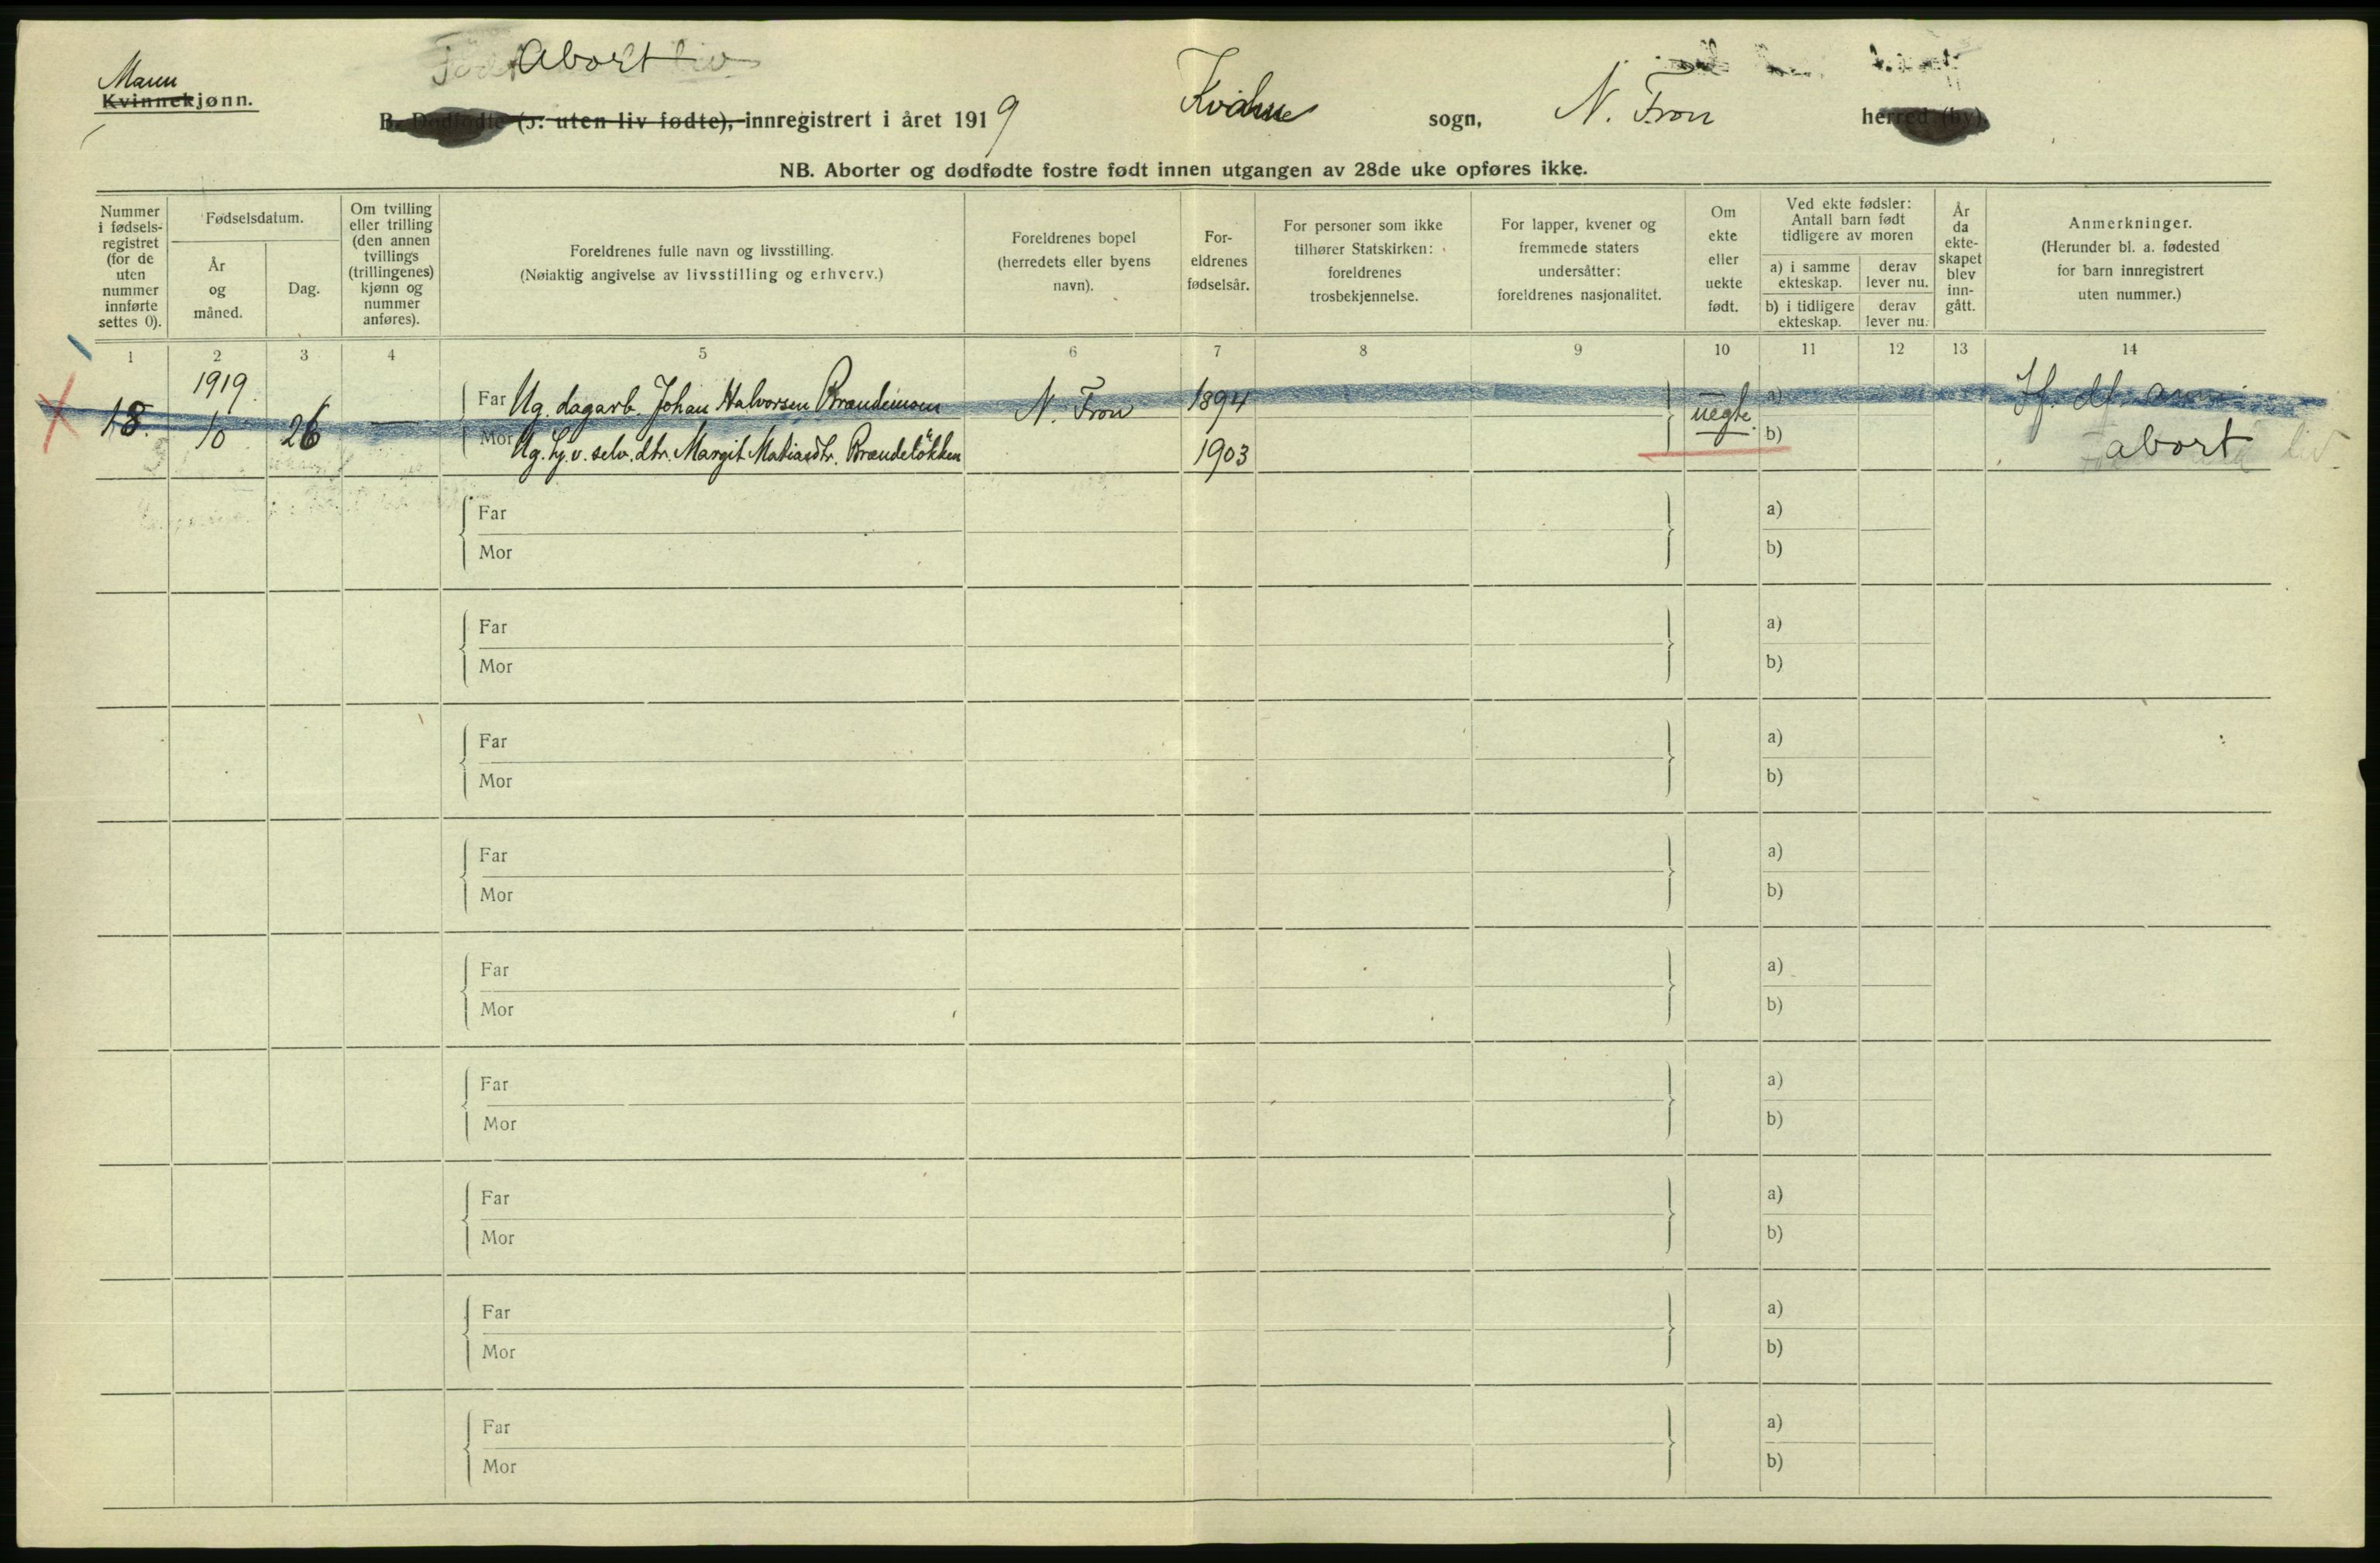 Abort
Mann
Kvinnekjønn.
B. Dødfødte (ɔ: uten liv fødte), innregistrert i året 1919 Kvikne sogn, N. Fron herred (by).
NB. Aborter og dødfødte fostre født innen utgangen av 28de uke opføres ikke.
Nummer i fødsels-registret (for de uten nummer innførte settes 0).
Fødselsdatum.
År og måned.
Dag.
Om tvilling eller trilling (den annen tvillings (trillingenes) kjønn og nummer anføres).
Foreldrenes fulle navn og livsstilling.
(Nøiaktig angivelse av livsstilling og erhverv.)
Foreldrenes bopel (herredets eller byens navn).
For-eldrenes fødselsår.
For personer som ikke tilhører Statskirken: foreldrenes trosbekjennelse.
For lapper, kvener og fremmede staters undersåtter: foreldrenes nasjonalitet.
Om ekte eller uekte født.
Ved ekte fødsler: Antall barn født tidligere av moren
a) i samme ekteskap.
derav lever nu.
b) i tidligere ekteskap.
derav lever nu.
År da ekte-skapet blev inn-gått.
Anmerkninger.
(Herunder bl. a. fødested for barn innregistrert uten nummer.)
1 2 3 4 5 6 7 8 9 10 11 12 13 14
1919.
18. 10 26 —
Far Ug. dagarb. Johan Halvorsen Brændemoen N. Fron 1894 uegte. a)
Mor Ug. hj. v. selv. dtr. Margit Matiasdtr. Brændeløkken 1903 b) abort
Far a)
Mor b)
Far a)
Mor b)
Far a)
Mor b)
Far a)
Mor b)
Far a)
Mor b)
Far a)
Mor b)
Far a)
Mor b)
Far a)
Mor b)
Far a)
Mor b)